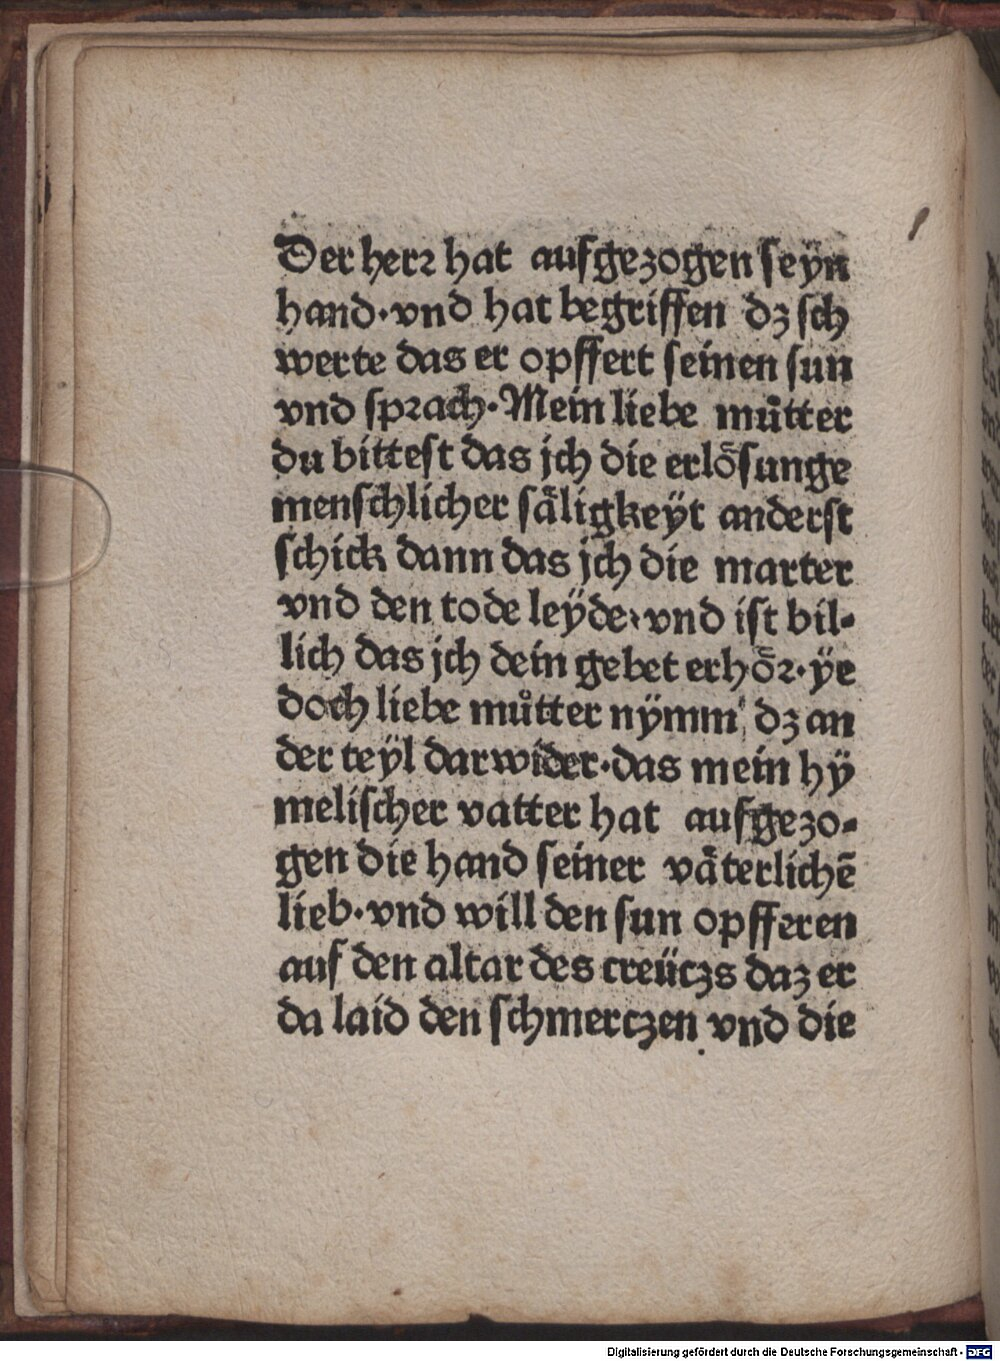 Der herr hat aufgezogen seÿn
hand·vnd hat begriffen dz sch
werte das er opffert seinen sun
vnd sprach·Mein liebe můtter
du bittest das jch die erlösunge
menschlicher säligkeÿt anderst
schick dann das jch die marter
vnd den tode leÿde·vnd ist bil-
lich das jch dein gebet erhör·ÿe
doch liebe můtter nÿmm dz an
der teÿl darwider·das mein hÿ
melischer vatter hat aufgezo-
gen die hand seiner väterlichē
lieb·vnd will den sun opfferen
auf den altar des creüczs daz er
da laid den schmerczen vnd die
Digitalisierung gefördert durch die Deutsche Forschungsgemeinschaft - DFG